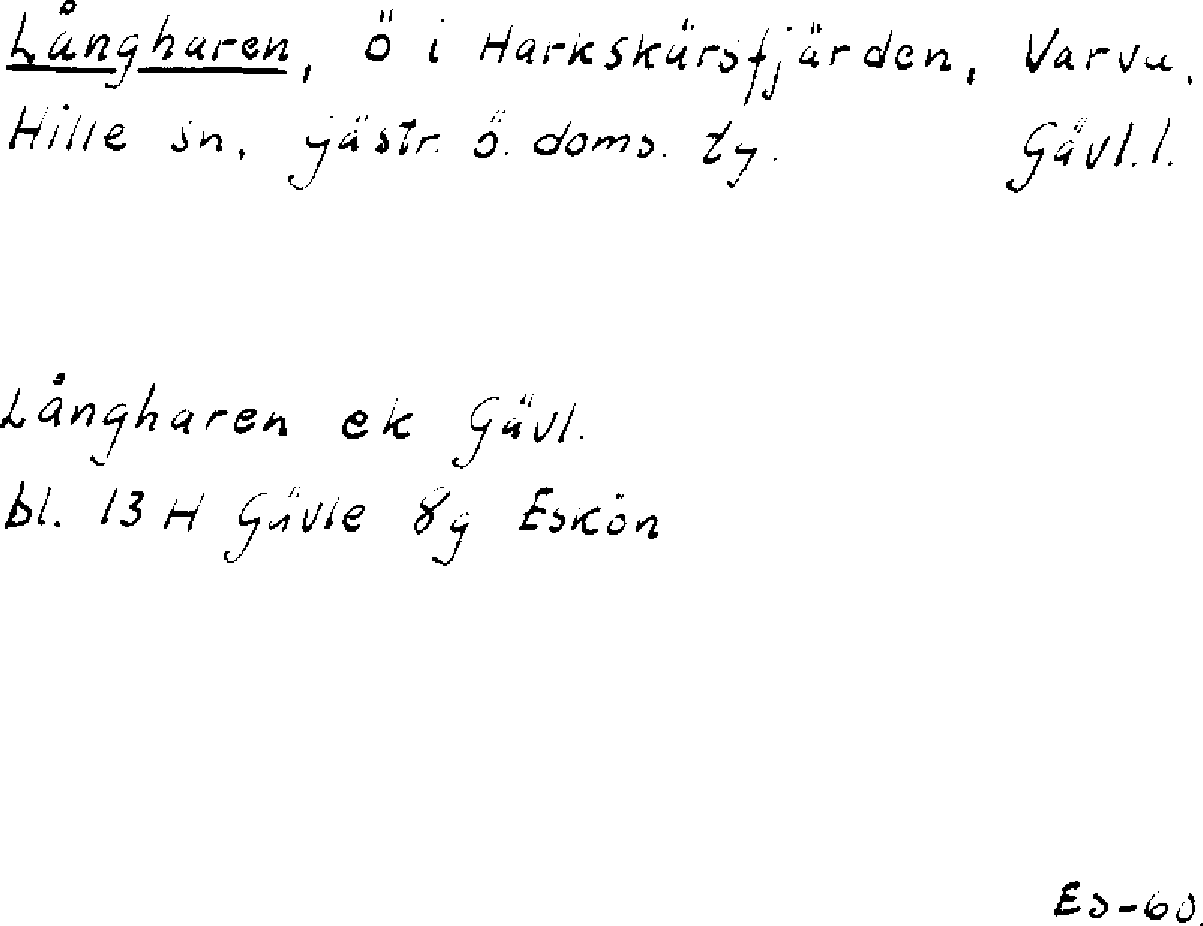 Långharen, ö i Harkskärsfjärden, Varva,
Hille sn, gästr. ö. doms. tg. Gävl.l.
Långharen ek Gävl.
bl. 13 H Gävle 8g Eskön
Es-60.